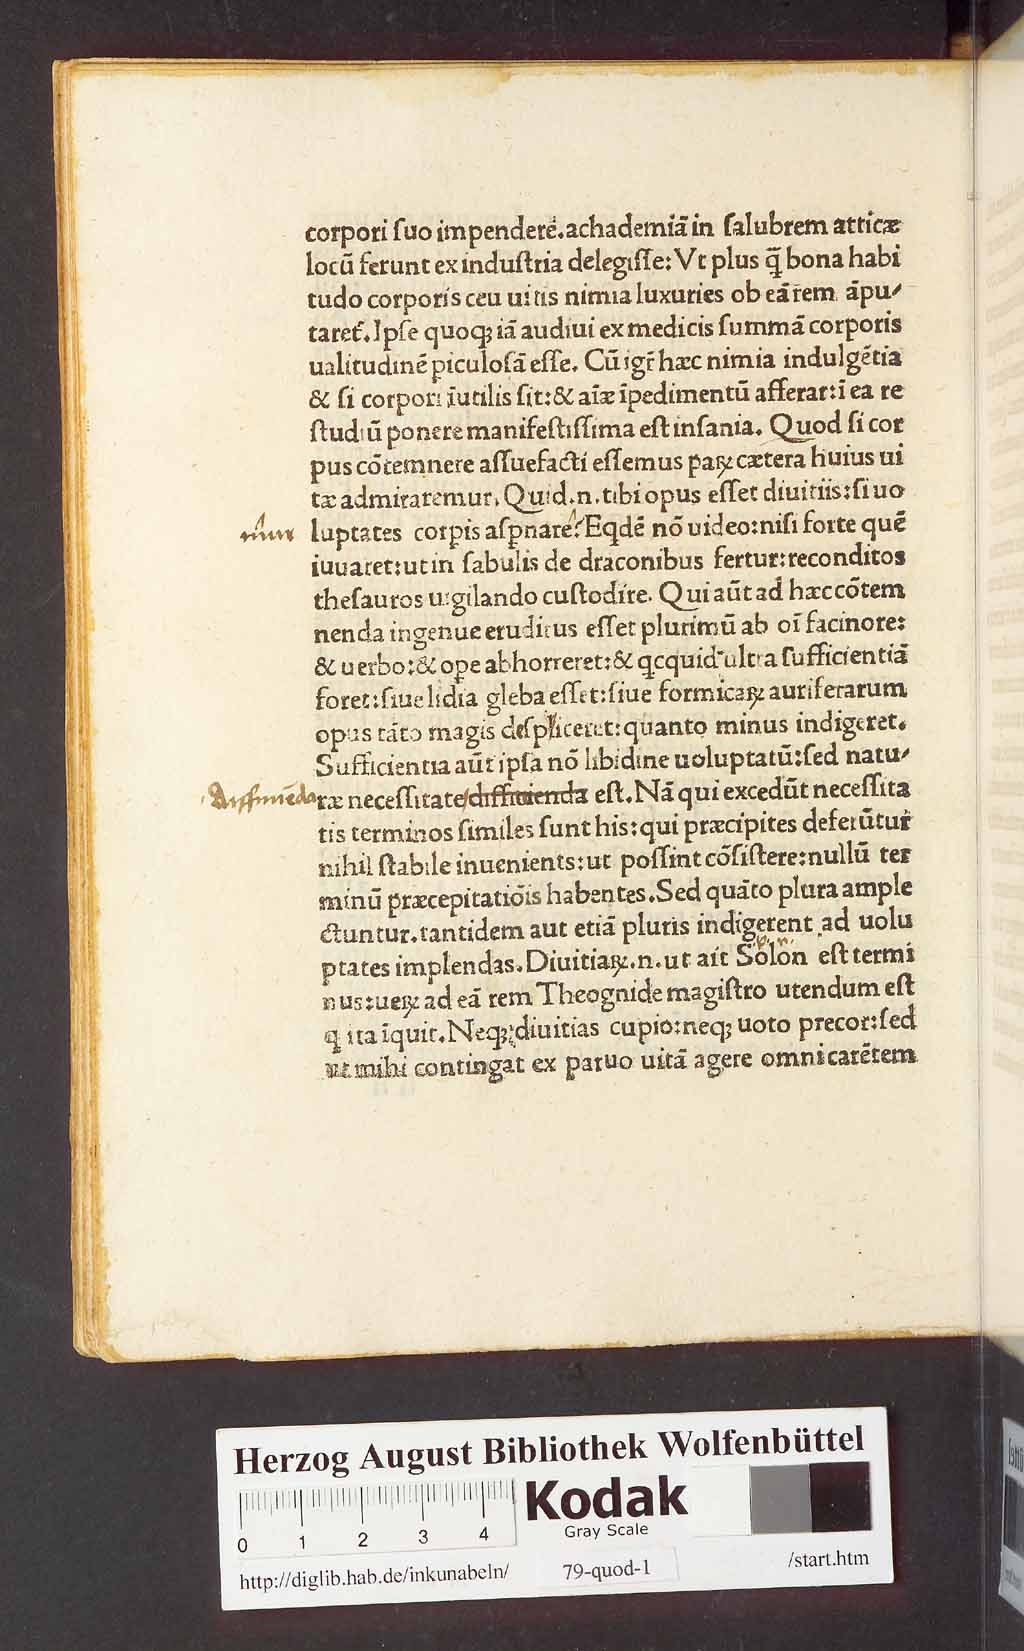 corpori ſuo impenderẽ. achademiã in ſalubrem atticæ
locũ ferunt ex induſtria delegiſſe: Vt plus q̃ bona habi
tudo corporis ceu uitis nimia luxuries ob eã rem ãpu⸗
taret̃. Ipſe quoqꝫ iã audiui ex medicis ſummã corporis
ualitudinẽ piculoſã eſſe. Cũ igr̃ hæc nimia indulgẽtia
& ſi corpori ĩutilis ſit: & aĩæ ĩpedimentũ afferat: ĩ ea re
ſtudiũ ponere manifeſtiſſima eſt inſania. Quod ſi cor
pus cõtemnere aſſuefacti eſſemus paꝝ cætera huius ui
tæ admiraremur. Quid .n. tibi opus eſſet diuitiis: ſi uo
luptates corpis aſpnare? Eqdẽ nõ uideo: niſi forte quẽ
iuuaret: ut in fabulis de draconibus fertur: reconditos
theſauros uigilando cuſtodire. Qui aũt ad hæc cõtem
nenda ingenue eruditus eſſet plurimũ ab oĩ facinore:
& uerbo: & ope abhorreret: & qcquid ultra ſufficientiã
foret: ſiue lidia gleba eſſet: ſiue formicaꝝ auriferarum
opus tãto magis deſpliceret: quanto minus indigeret.
Sufficientia aũt ipſa nõ libidine uoluptatũ: ſed natu⸗
diffiniẽda
ræ neceſſitate diffitienda eſt. Nã qui excedũt neceſſita
tis terminos ſimiles ſunt his: qui præcipites deferũtur
nihil ſtabile inuenients: ut poſſint cõſiſtere: nullũ ter
minũ præcepitatiõis habentes. Sed quãto plura ample
ctuntur. tantidem aut etiã pluris indigerent ad uolu
ptates implendas. Diuitiaꝝ .n. ut ait Solon eſt termi
nus: ueꝝ ad eã rem Theognide magiſtro utendum eſt
q ita ĩquit. Neqꝫ diuitias cupio: neqꝫ uoto precor: ſed
ut mihi contingat ex paruo uitã agere omni carẽtem
Herzog August Bibliothek Wolfenbüttel
0 1 2 3 4
Kodak
Gray Scale
http://diglib.hab.de/inkunabeln/ 79-quod-1 /start.htm